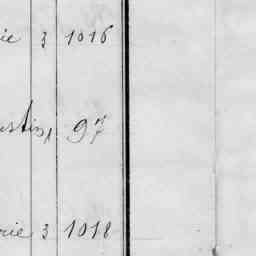 ie 3 1016
ustin 1 97
rie 3 1018